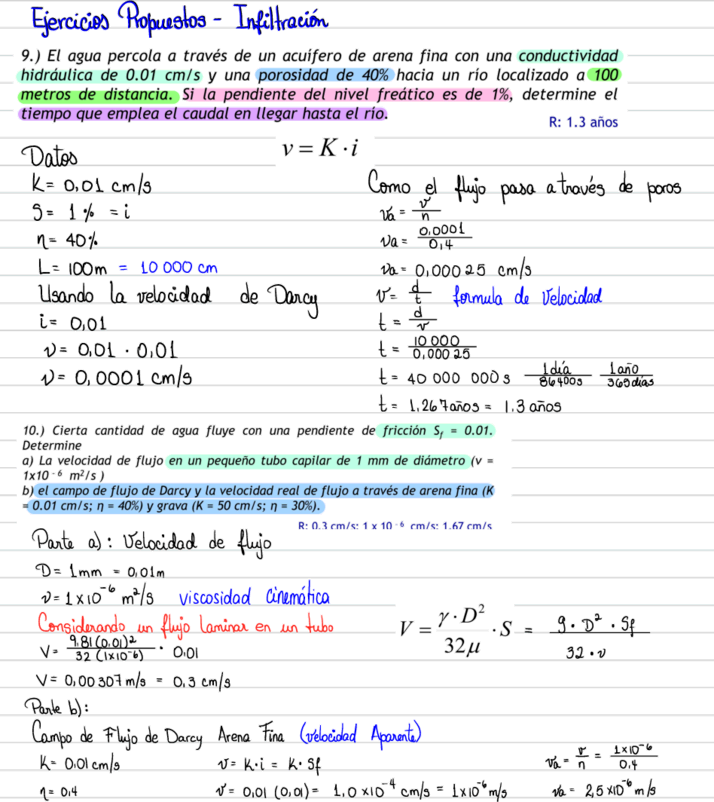 Ejercicios Propuestos - Infiltración
9.) El agua percola a través de un acuífero de arena fina con una conductividad
hidráulica de 0.01 cm/s y una porosidad de 40% hacia un río localizado a 100
metros de distancia. Si la pendiente del nivel freático es de 1%, determine el
tiempo que emplea el caudal en llegar hasta el río.
R: 1.3 años
v = K · i
Datos
K= 0,01 cm/s
S= 1% = i
η= 40%
L= 100m = 10 000 cm
Usando la velocidad de Darcy
i= 0,01
v= 0,01 . 0,01
v= 0,0001 cm/s
Como el flujo pasa a través de poros
va = v/n
va = 0,0001/0,4
va = 0,00025 cm/s
v= d/t formula de Velocidad
t = d/v
t = 10 000/0,00025
t = 40 000 000 s 1día/86400s 1año/365días
t = 1,267años = 1,3 años
10.) Cierta cantidad de agua fluye con una pendiente de fricción Sf = 0.01.
Determine
a) La velocidad de flujo en un pequeño tubo capilar de 1 mm de diámetro (v =
1x10⁻⁶ m²/s )
b) el campo de flujo de Darcy y la velocidad real de flujo a través de arena fina (K
= 0.01 cm/s; η = 40%) y grava (K = 50 cm/s; η = 30%).
R: 0.3 cm/s; 1 x 10⁻⁶ cm/s; 1.67 cm/s
Parte a): Velocidad de flujo
D= 1mm = 0,01m
v= 1x10⁻⁶ m²/s viscosidad cinemática
Considerando un flujo laminar en un tubo
V = γ · D²/32μ · S = g · D² · Sf/32 · v
V= 9.81(0,01)²/32 (1x10⁻⁶) · 0,01
V= 0,00307m/s = 0,3 cm/s
Parte b):
Campo de Flujo de Darcy Arena Fina (velocidad Aparente)
K= 0.01cm/s
η= 0.4
v= K.i = K. Sf
v= 0,01 (0,01)= 1,0 x10⁻⁴ cm/s = 1x10⁻⁶ m/s
va = v/n = 1x10⁻⁶/0,4
va = 2,5x10⁻⁶ m/s